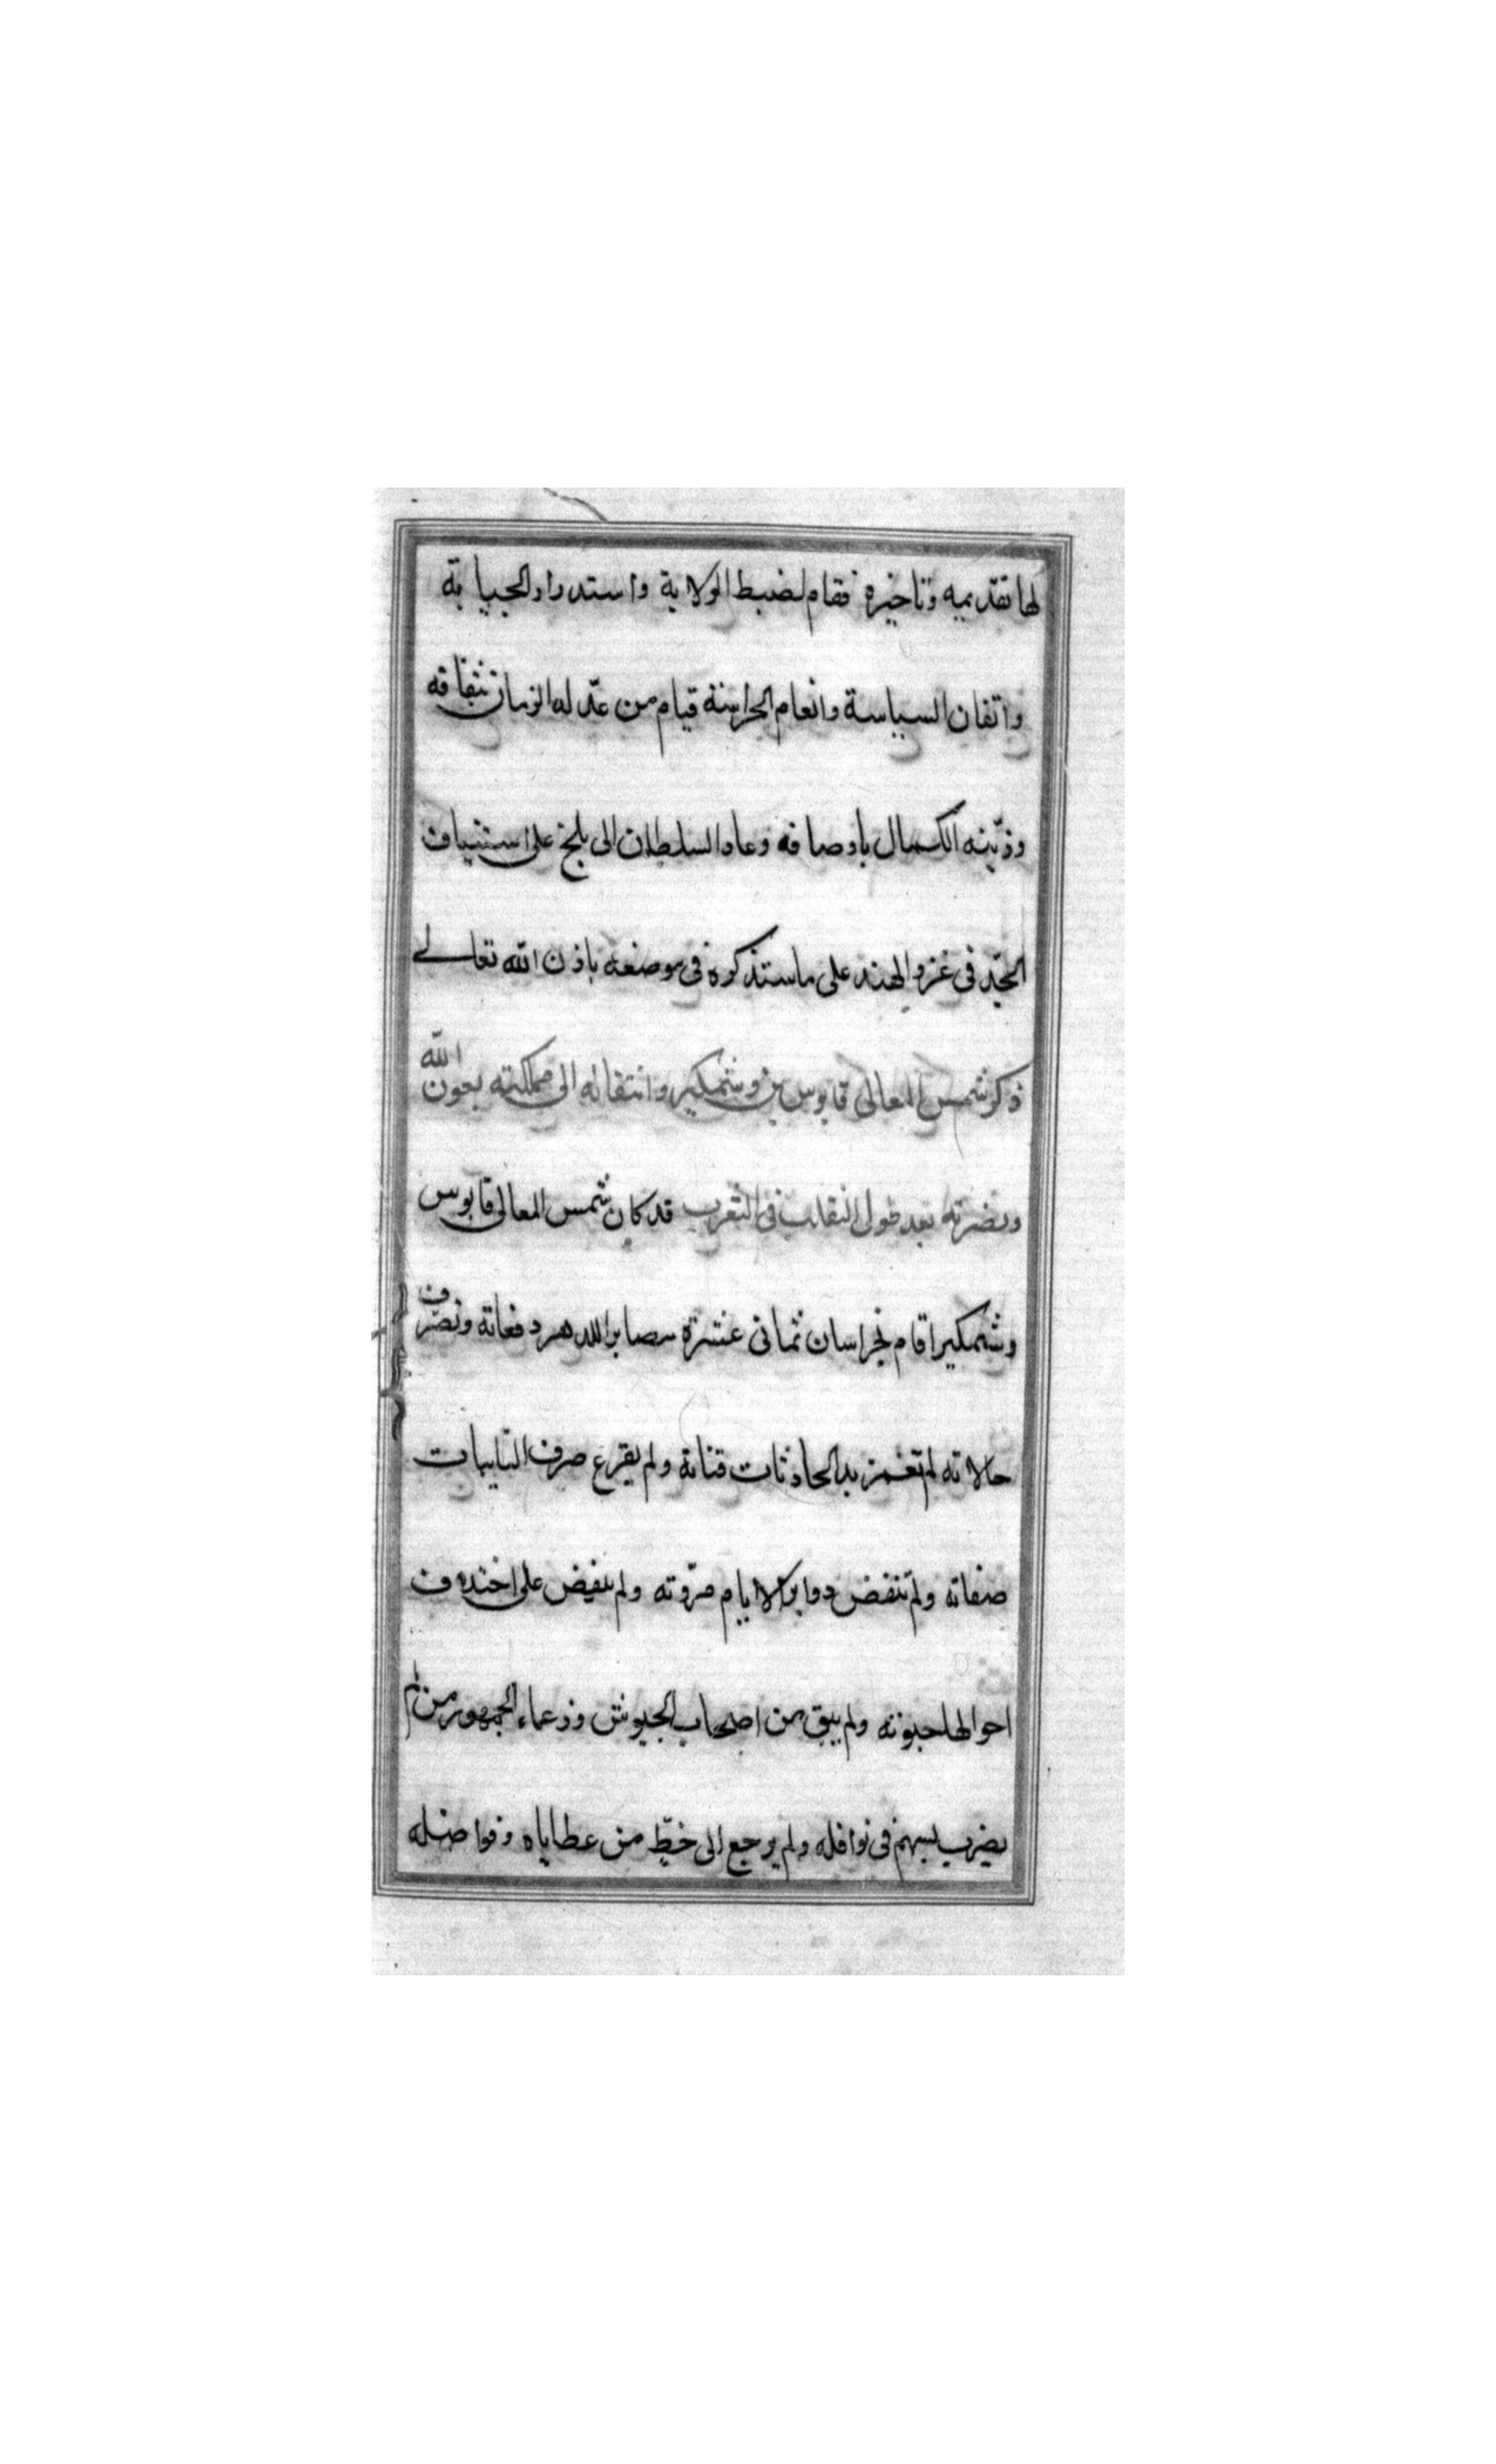 لها تقديمه وتاخيره فقام لضبط الولاية واستدرار الجباية
واتقان السياسة وانعام الحراسة قيام من عدّ له الزمان بثقافه
وزيّنه الكمال باوصافه وعاد السلطان الى بلخ على استيناف
الجّد فى غزو الهند على ما ستذكره فى موضعه باذن الله تعالى
ذكر شمس المعالى قابوس بن وشمكير وانتقاله الى مملكته بعون الله
ونصرته بعد طول التقلب فى التغرب قد كان شمس المعالى قابوس
وشمكير اقام بخراسان ثمانى عشرة مصابرا للدهر دفعاته وتصّرف
حالاته لم تغمز يد الحادثات قناته ولم يقرع صرف النايبات
صفاته ولم تنقض دواير الايام مرّوته ولم ينقض على اختلاف
احوالها حبوته ولم يبق من اصحاب الجيوش وزعماء الجمهور من لم
يضرب بسهم فى نوافله ولم يرجع الى خطّ من عطاياه وفواضله